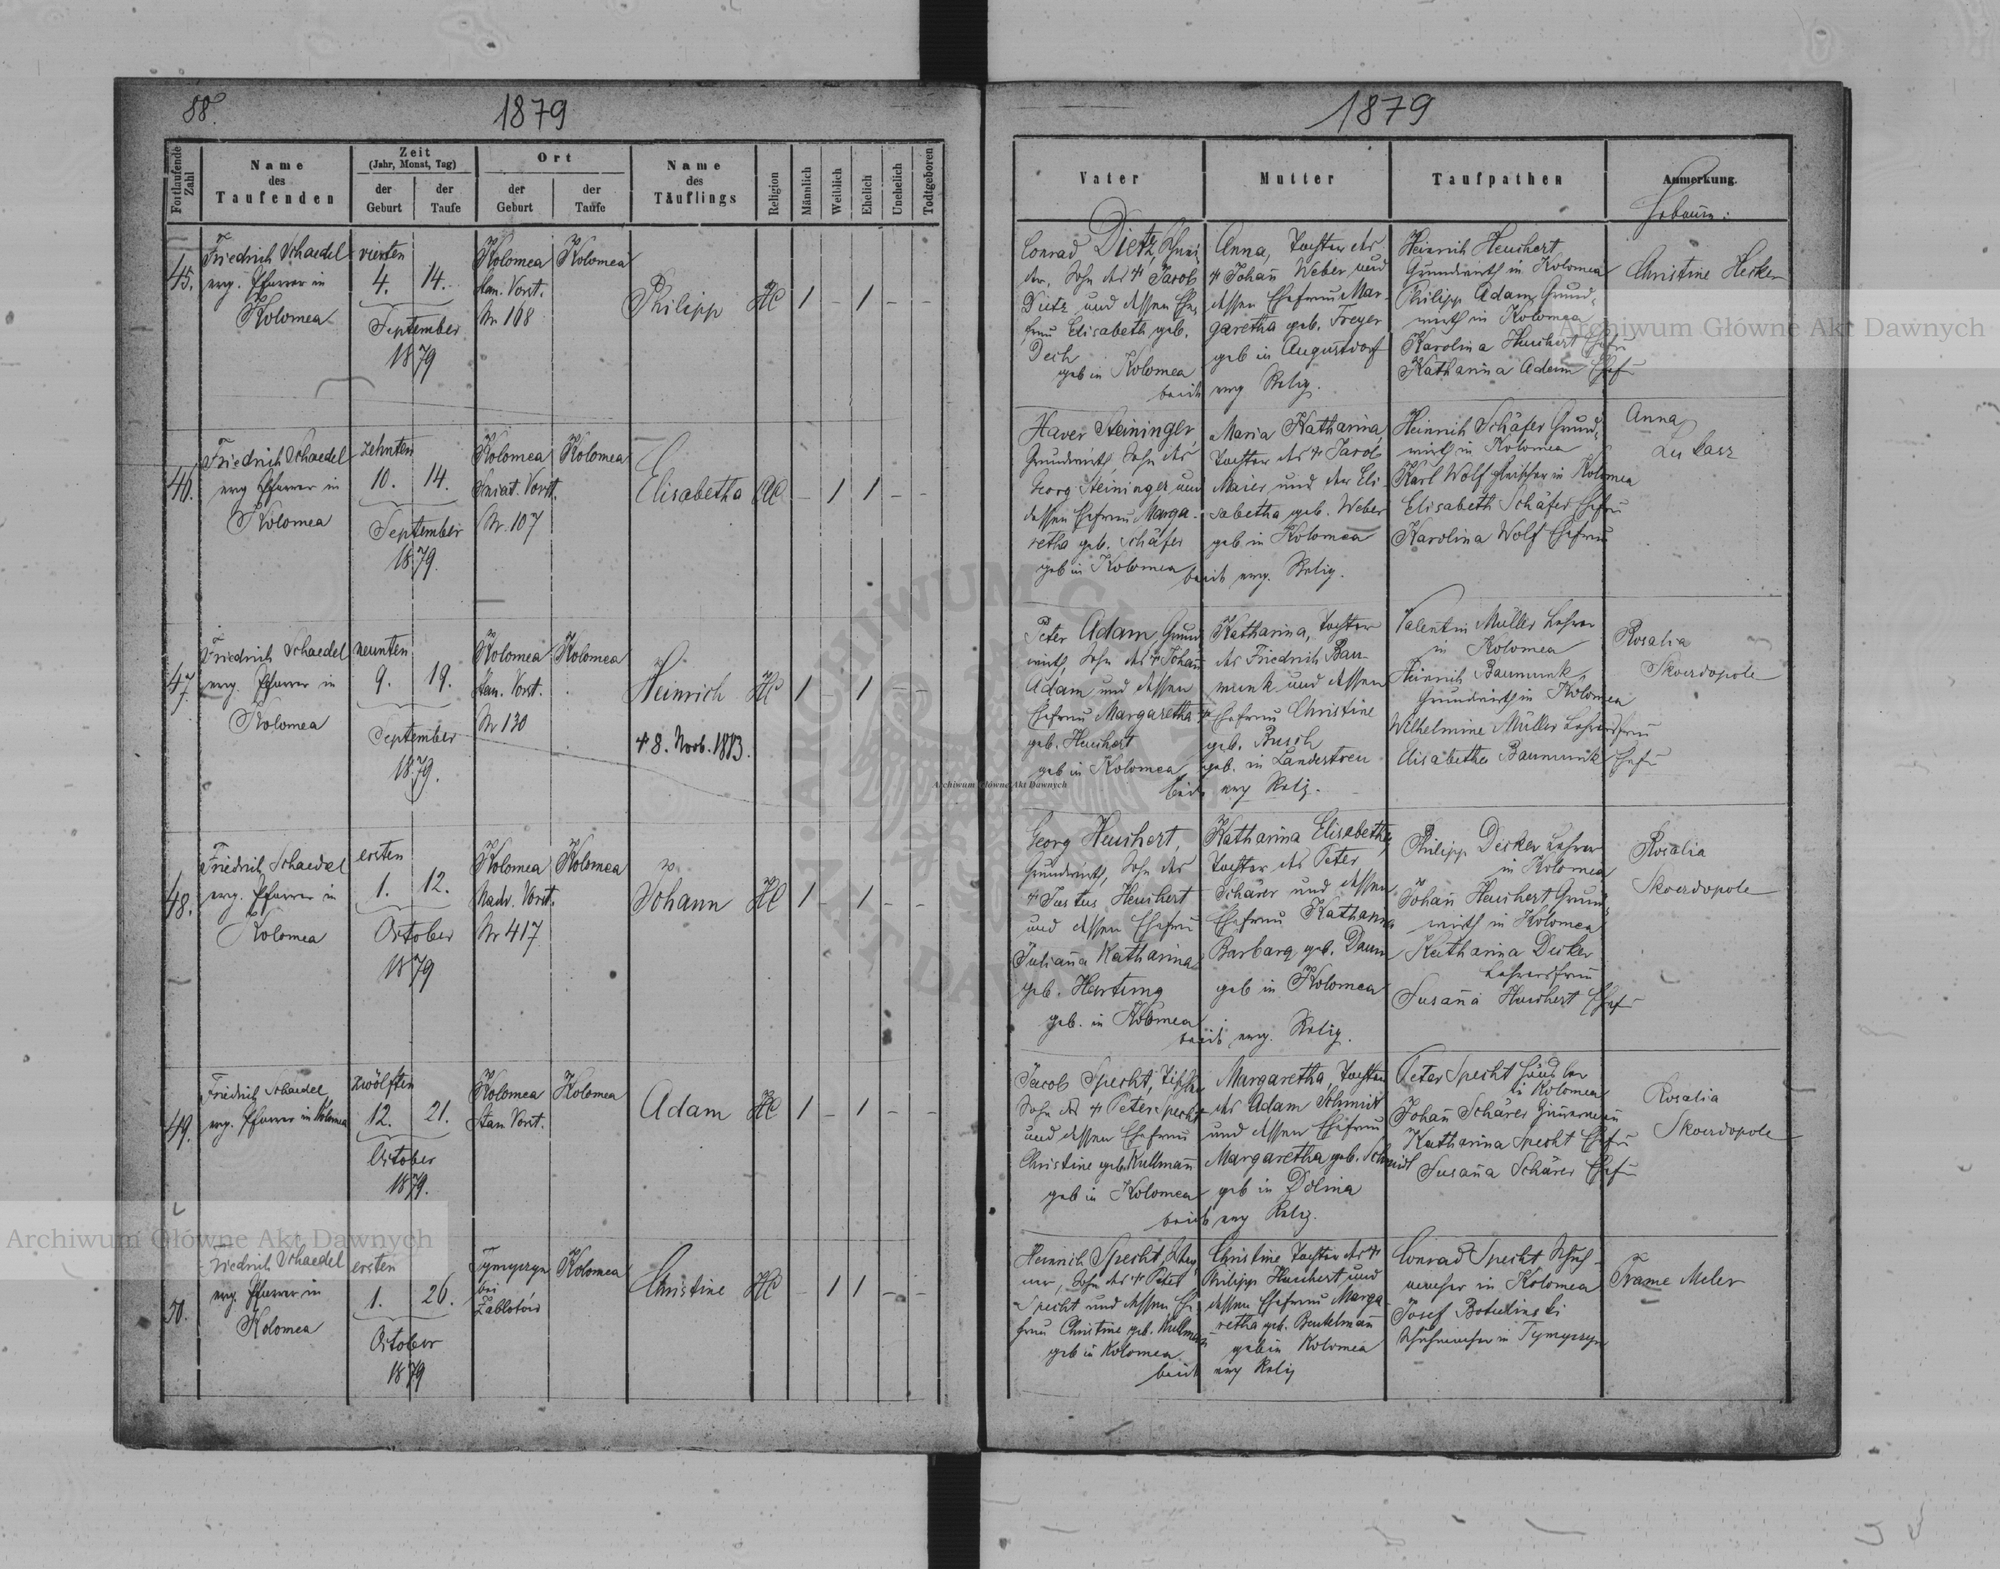 88.
1879
Fortlaufende Zahl
Name
des
Taufenden
Zeit
(Jahr, Monat, Tag)
der
Geburt
der
Taufe
Ort
der
Geburt
der
Taufe
Name
des
Täuflings
Religion
Männlich
Weiblich
Ehelich
Unehelich
Todtgeboren
45.
Friedrich Schaedel
evg. Pfarrer in
Kolomea
vierten
4. 14.
September
1879
Kolomea
Stan. Vorst.
Nr 168
Kolomea
Philipp
HC
1 – 1 – –
46.
Friedrich Schaedel
evg Pfarrer in
Kolomea
zehnten
10. 14.
September
1879.
Kolomea
Sniat. Vorst.
Nr. 107
Kolomea
Elisabetha
AC
– 1 1 – –
47.
Friedrich Schaedel
evg. Pfarrer in
Kolomea
neunten
9. 19.
September
1879.
Kolomea
Stan. Vorst.
Nr 130
Kolomea
Heinrich
HC
1 – 1 – –
8. Novb. 1883.
48.
Friedrich Schaedel
evg. Pfarrer in
Kolomea
ersten
1. 12.
October
1879
Kolomea
Nadw. Vorst.
Nr 417
Kolomea
Johann
HC
1 – 1 – –
49.
Friedrich Schaedel
evg. Pfarrer in Kolomea
zwölften
12. 21.
October
1879.
Kolomea
Stan Vorst.
Kolomea
Adam
HC
1 – 1 – –
50.
Friedrich Schaedel
evg. Pfarrer in
Kolomea
ersten
1. 26.
October
1879
Tymyczyn
bei
Zablotów
Kolomea
Christine
HC
– 1 1 – –
1879
Vater
Mutter
Taufpathen
Anmerkung.
Hebaum:
Conrad Dietz, Schnei
der, Sohn des † Jacob
Dietz und dessen Ehe
frau Elisabeth geb.
Dech
geb in Kolomea
beide evg Relig.
Anna, Tochter des
† Johañ Weber und
dessen Ehefrau Mar
garetha geb. Freyer
geb in Augustdorf
Heinrich Heuchert
Grundwirth in Kolomea
Philipp Adam Grund-
wirth in Kolomea
Karolina Heuchert Ehefr
Katharina Adam Ehefr
Christine Hecker
Xaver Steininger,
Grundwirth, Sohn des
Georg Steininger und
dessen Ehefrau Marga-
retha geb. Schäfer
geb in Kolomea
beide evg. Relig.
Maria Katharina,
Tochter des † Jacob
Maier und der Eli
sabetha geb. Weber
geb in Kolomea
Heinrich Schäfer Grund-
wirth in Kolomea
Karl Wolf Fleischer in Kolomea
Elisabeth Schäfer Ehefrau
Karolina Wolf Ehefrau
Anna
Peter Adam, Grund
wirth, Sohn des † Johañ
Adam und dessen
Ehefrau Margaretha
geb. Heuchert
geb in Kolomea
beide evg Relig.
Katharina, Tochter
des Friedrich Bau-
munk und dessen
Ehefrau Christine
geb. Busch
geb. in Landestreu
Valentin Müller Lehrer
in Kolomea
Heinrich Baumunk,
Grundwirth in Kolomea
Wilhelmine Müller Lehrersfrau
Elisabetha Baumunk Ehefr
Rosalia
Skwerdopole
Georg Heuchert,
Grundwirth, Sohn des
† Justus Heuchert
und dessen Ehefrau
Juliaña Katharina
geb. Hartung
geb. in Kolomea
beide evg. Relig.
Katharina Elisabetha,
Tochter des Peter
Schärer und dessen
Ehefrau Katharina
Barbara geb. Daum
geb in Kolomea
Philipp Decker Lehrer
in Kolomea
Johañ Heuchert Grund-
wirth in Kolomea
Katharina Decker
Lehrersfrau
Susaña Heuchert Ehefr
Rosalia
Skwerdopole
Jacob Specht,
Sohn des † Peter Specht
und dessen Ehefrau
Christine geb. Kullmañ
geb in Kolomea
beide evg Relig.
Margaretha, Tochter
des Adam Schmidt
und dessen Ehefrau
Margaretha geb. Schmidt
geb in Dolina
Peter Specht
in Kolomea
Johañ Schärer Zimmermañ
Katharina Specht Ehefr
Susaña Schärer Ehefr
Rosalia
Skwerdopole
Heinrich Specht,
Sohn des † Peter
Specht und dessen Ehe
frau Christine geb. Kullmañ
geb in Kolomea
beide evg Relig
Christine Tochter des †
Philipp Heuchert und
dessen Ehefrau Marga
retha geb. Beutelmañ
geb in Kolomea
Conrad Specht Schuh-
macher in Kolomea
Josef
Schuhmacher in Tymyczyn
Frame Meler
Archiwum Główne Akt Dawnych
Archiwum Główne Akt Dawnych
Archiwum Główne Akt Dawnych